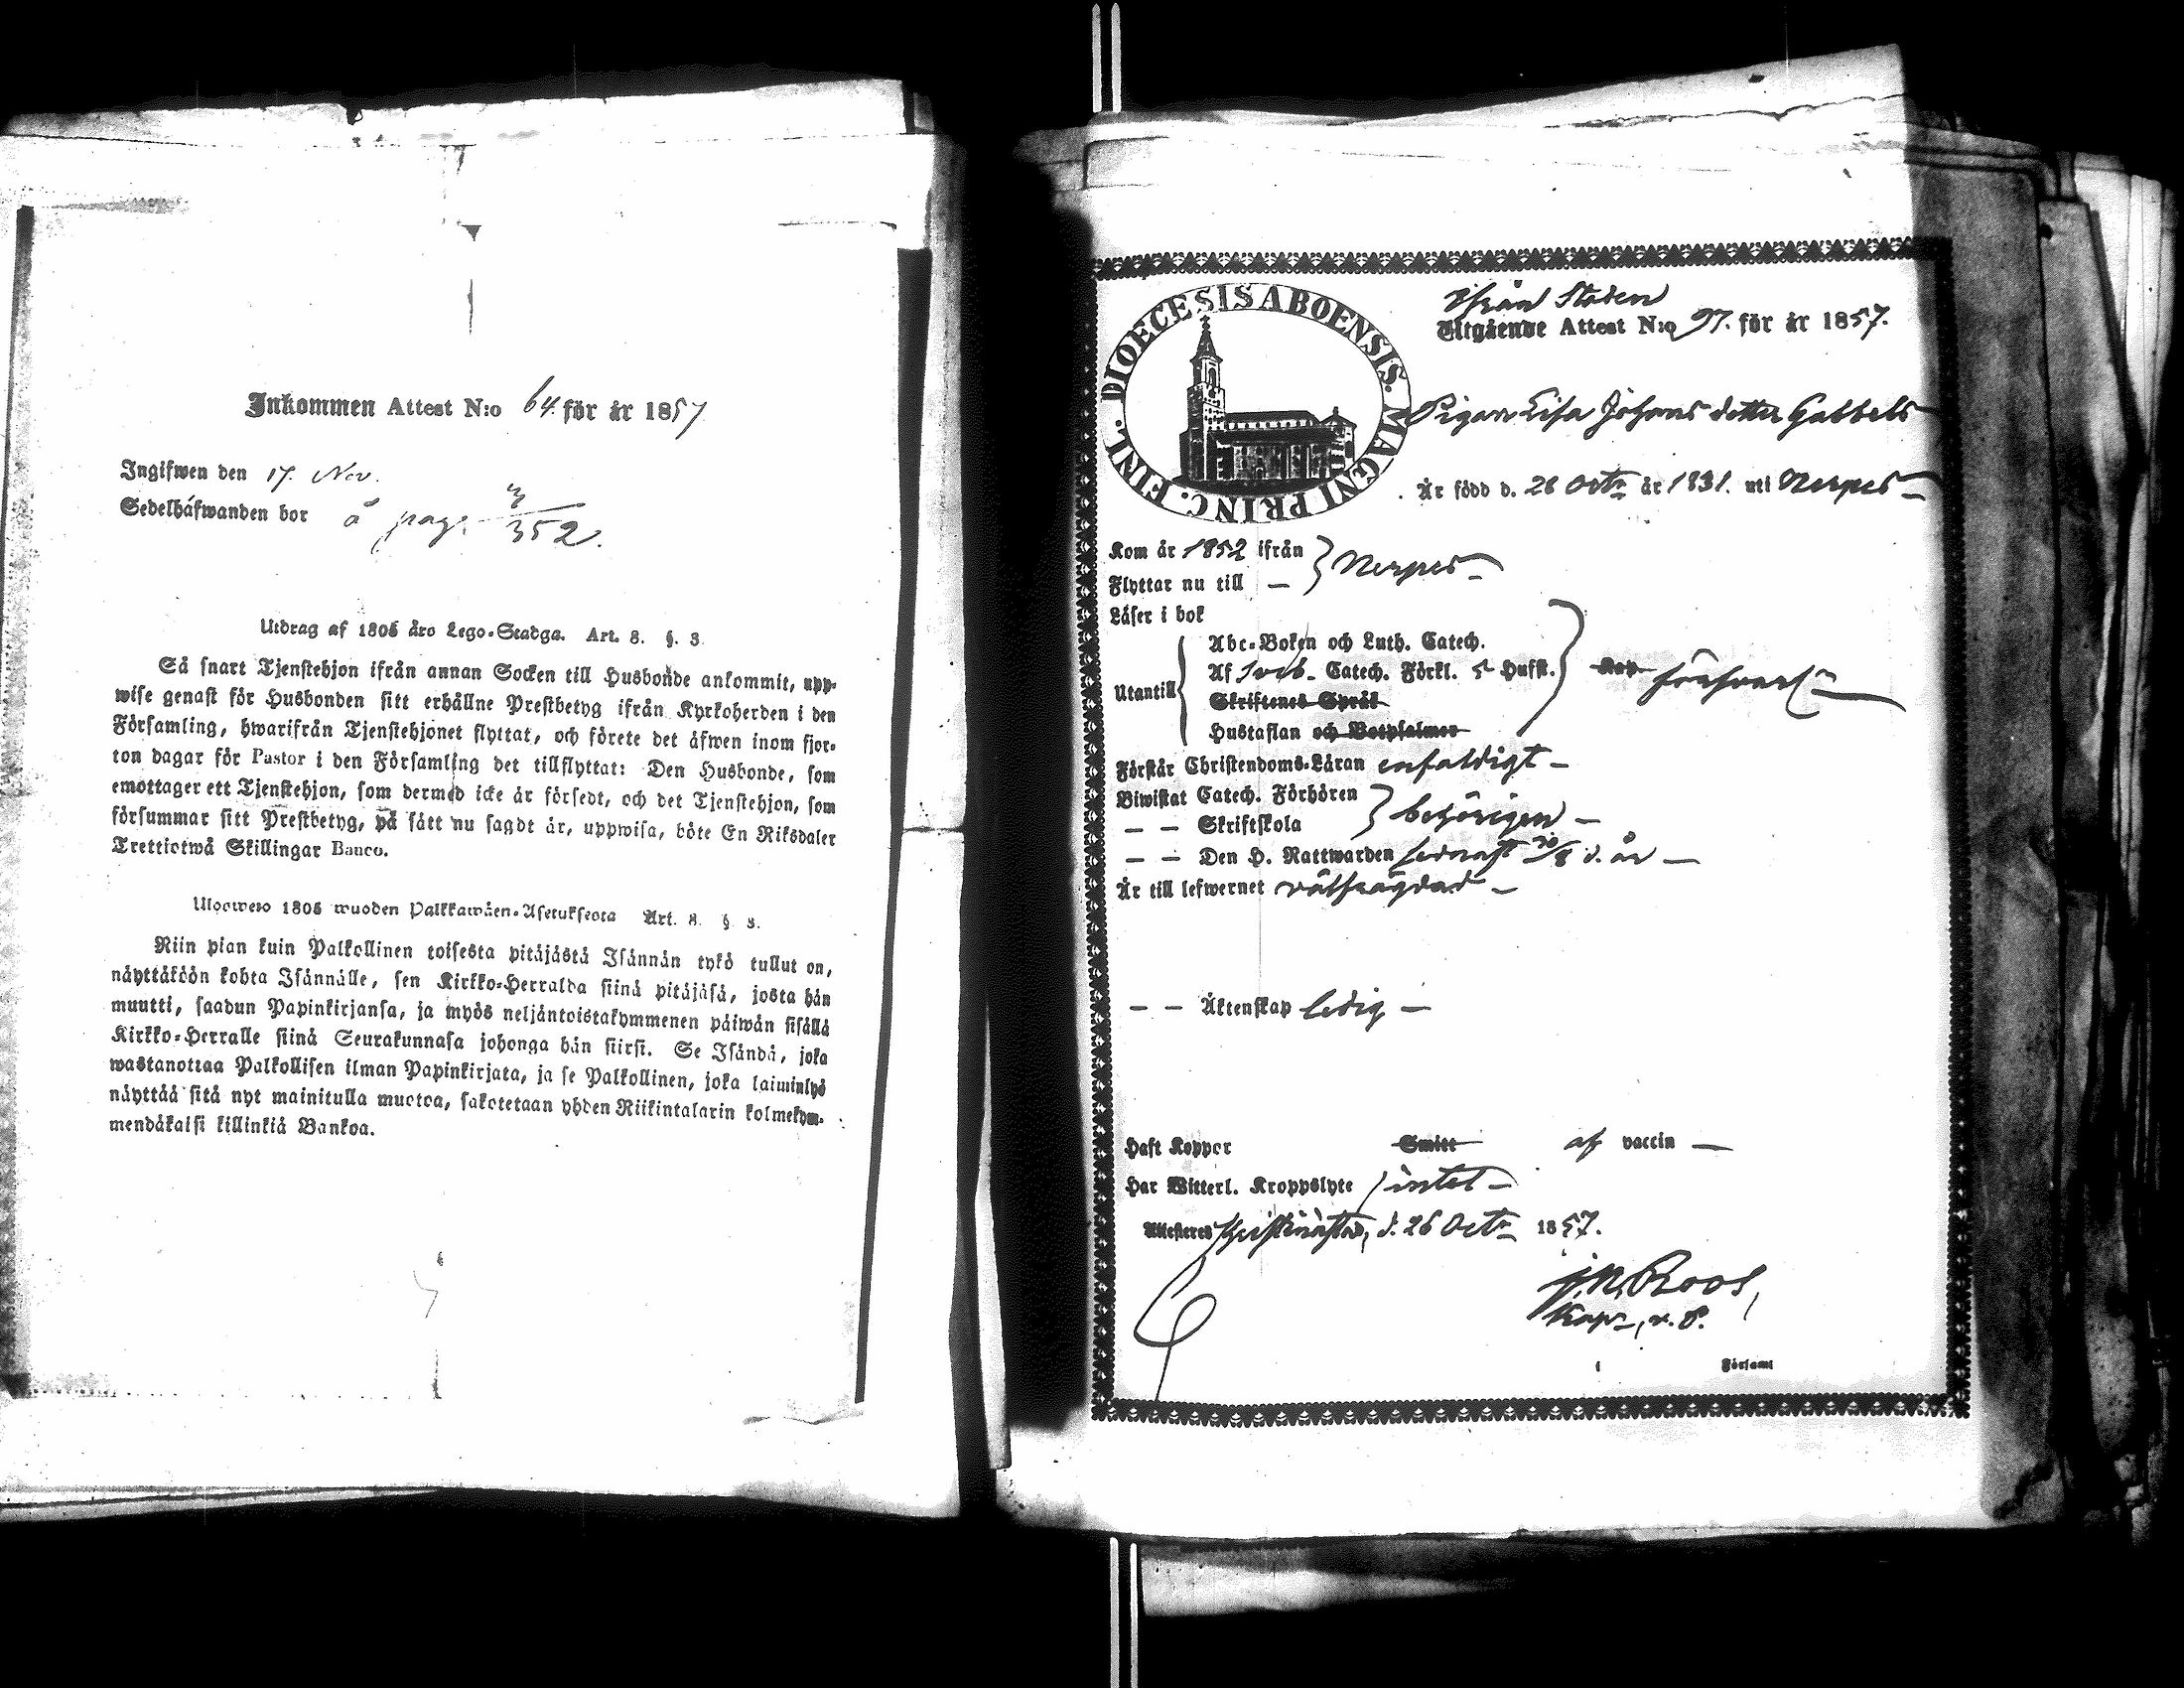 Inkommen Attest N:o 64. för år 1857
Ingifwen den 17. Nov.
Sedelhäfwanden bor å pag. 3/352.
Utdrag af 1805 års Lego-Stadga. Art. 8. §. 3.
Så snart Tjenstehjon ifrån annan Socken till Husbonde ankommit, upp-
wise genast för Husbonden sitt erhållne Prestbetyg ifrån Kyrkoherden i den
Församling, hwarifrån Tjenstehjonet flyttat, och förete det äfwen inom fjor-
ton dagar för Pastor i den Församling det tillflyttat: Den Husbonde, som
emottager ett Tjenstehjon, som dermed icke är försedt, och det Tjenstehjon, som
försummar sitt Prestbetyg, på sätt nu sagdt är, uppwisa, böte En Riksdaler
Trettiotwå Skillingar Banco.
Ulosweto 1805 wuoden Palkkawäen-Asetuksesta Art. 8. § 3.
Niin pian kuin Palkollinen toisesta pitäjästä Isännän tykö tullut on,
näyttäköön kohta Isännälle, sen Kirkko-Herralda siinä pitäjäsä, josta hän
muutti, saadun Papinkirjansa, ja myös neljäntoistakymmenen päiwän sisällä
Kirkko-Herralle siinä Seurakunnasa johonga hän siirsi. Se Isändä, joka
wastanottaa Palkollisen ilman Papinkirjata, ja se Palkollinen, joka laiminlyö
näyttää sitä nyt mainitulla muotoa, sakotetaan yhden Riikintalarin kolmekym-
mendäkaksi killinkiä Bankoa.
DIOECESIS ABOENSIS. MAGNI PRINC. FINL.
Ifrån Staden
Utgående Attest N:o 97. för år 1857.
Pigan Lisa Johans dotter Gabbels
Är född d. 28 Octr år 1831. uti Nerpes
Kom år 1852 ifrån } Nerpes
Flyttar nu till —
Läser i bok
Abc-Boken och Luth. Catech.
Utantill Af Sveb. Catech. Förkl. 5 Hufst. försvarl.
Skriftenes Språk
Hustaflan och Botpsalmer
Förstår Christendoms-Läran enfaldigt —
Biwistat Catech. Förhören } behörigen —
— — Skriftskola
— — Den H. Nattwarden sednast 30/8 d. år —
Är till lefwernet välfrägdad —
— — Äktenskap ledig —
Haft Koppor Smitt af vaccin —
Har Witterl. Kroppslyte intet —
Attesteras Christinestad, d. 26 Octr 1857.
J. N. Roos,
Kapn, v. P.
i Församl